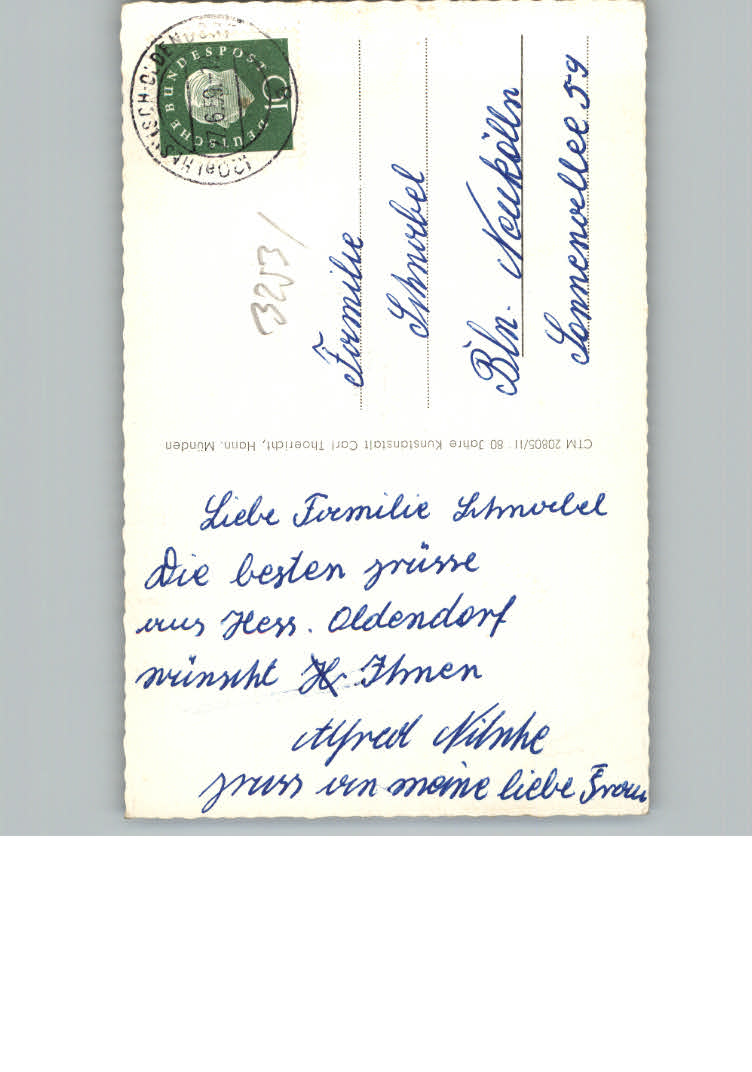 Liebe Familie Schnabel
Die besten grüsse
aus Hess. Oldendorf
wünscht Ihnen
Alfred
gruss an meine liebe Frau
CTM 20805/II 80 Jahre Kunstanstalt Carl Thoericht, Hann. Münden
Familie
Schnabel
Bln. Neukölln
Sonnenallee 59
3253
DEUTSCHE BUNDESPOST
10
HESSISCH OLDENDORF